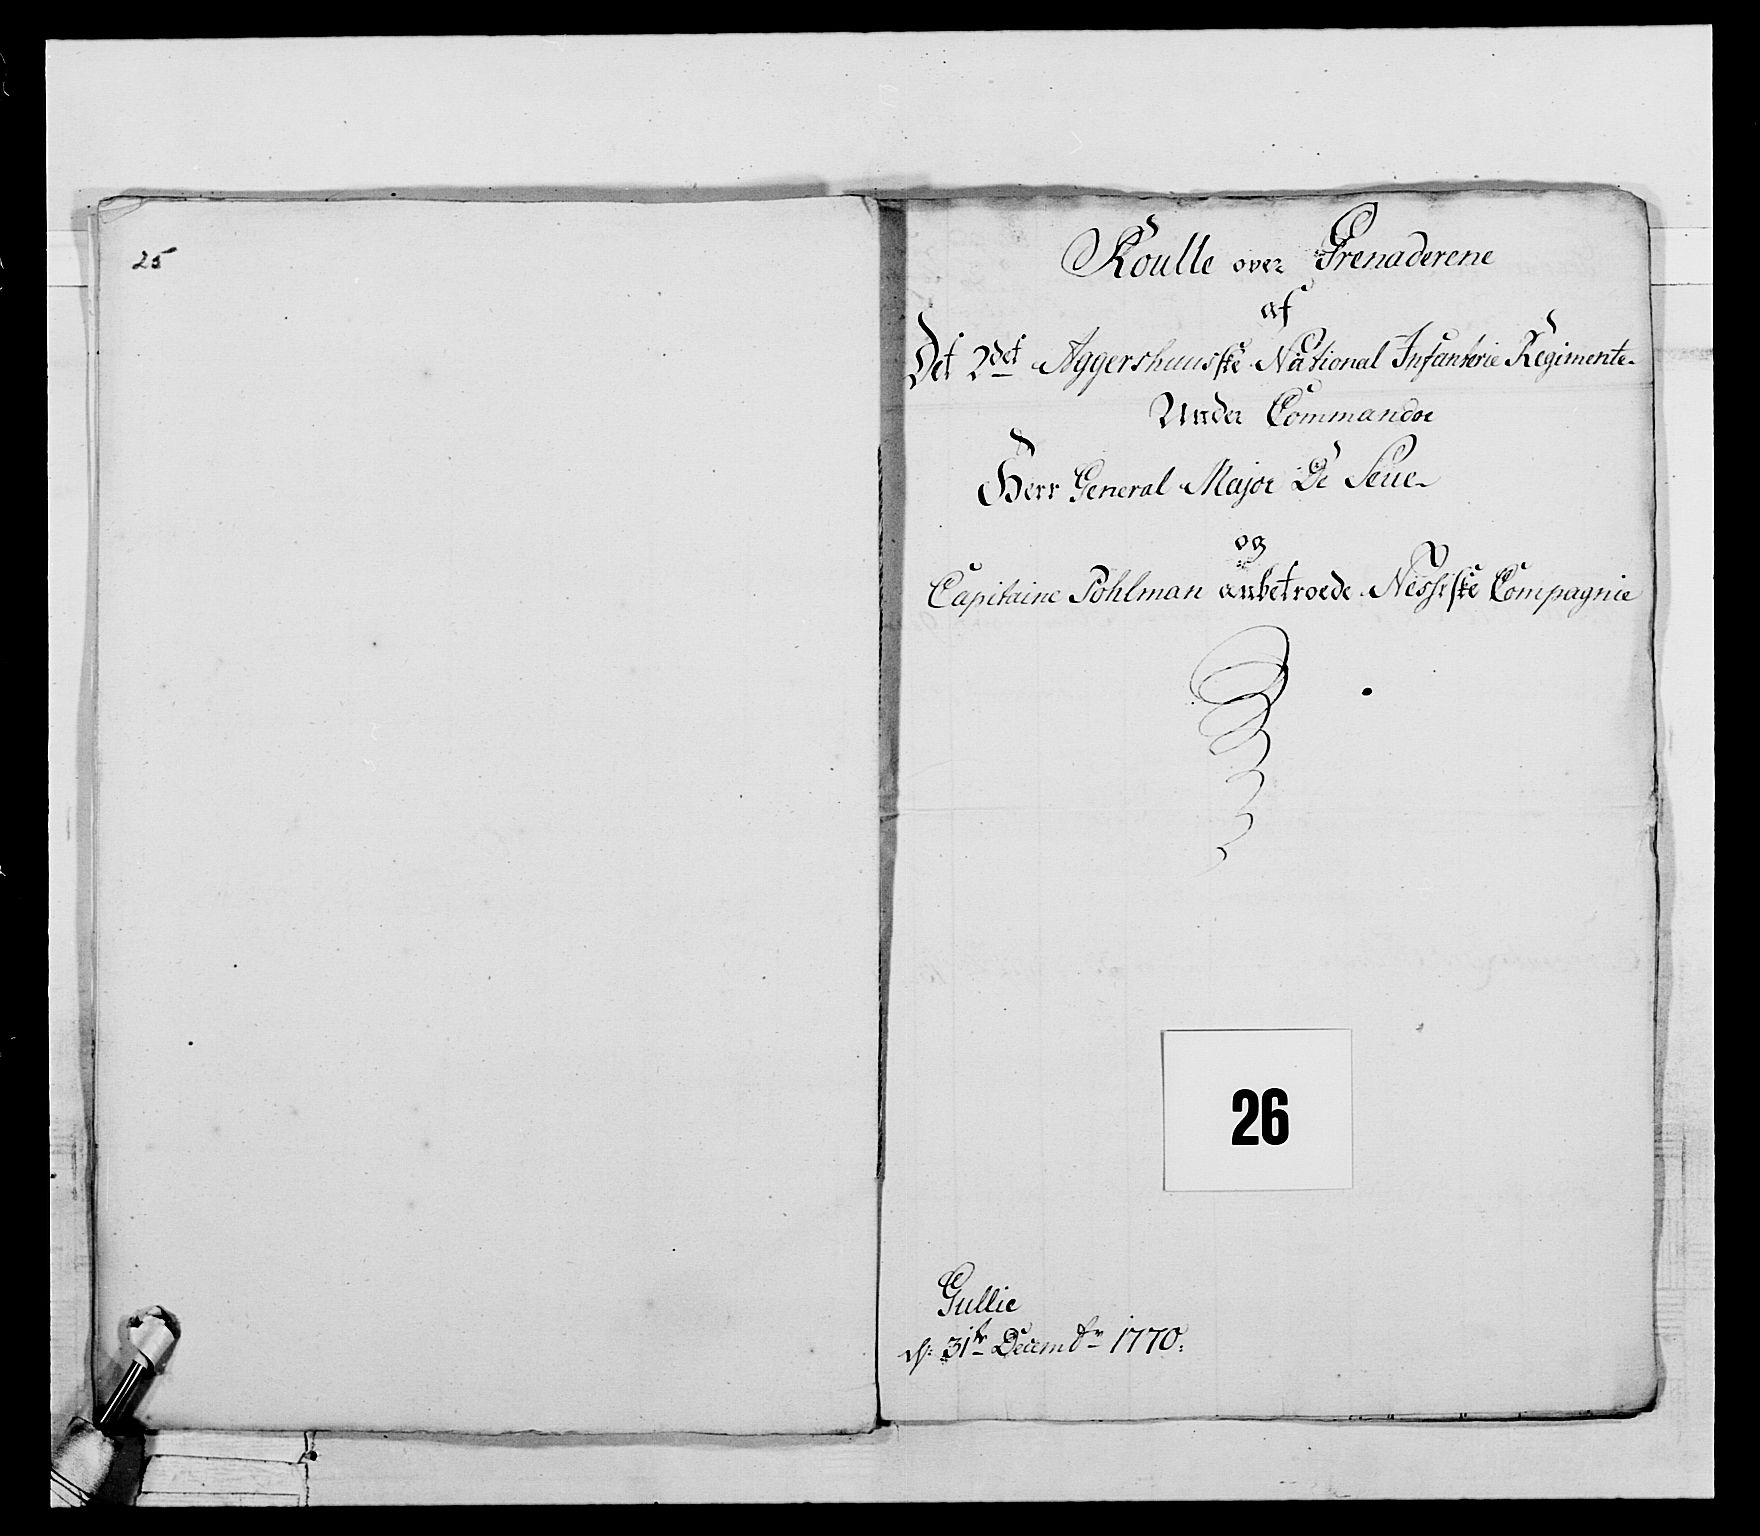 25
Roulle over Grenaderene
af
Det 2det Aggershuusske National Infanterie Regimente
Under Commandoe
Herr General Major De Seue
og
Capitaine Pohlman anbetroede Nessiske Compagnie
26
Gullie
d: 31te Decembr 1770.